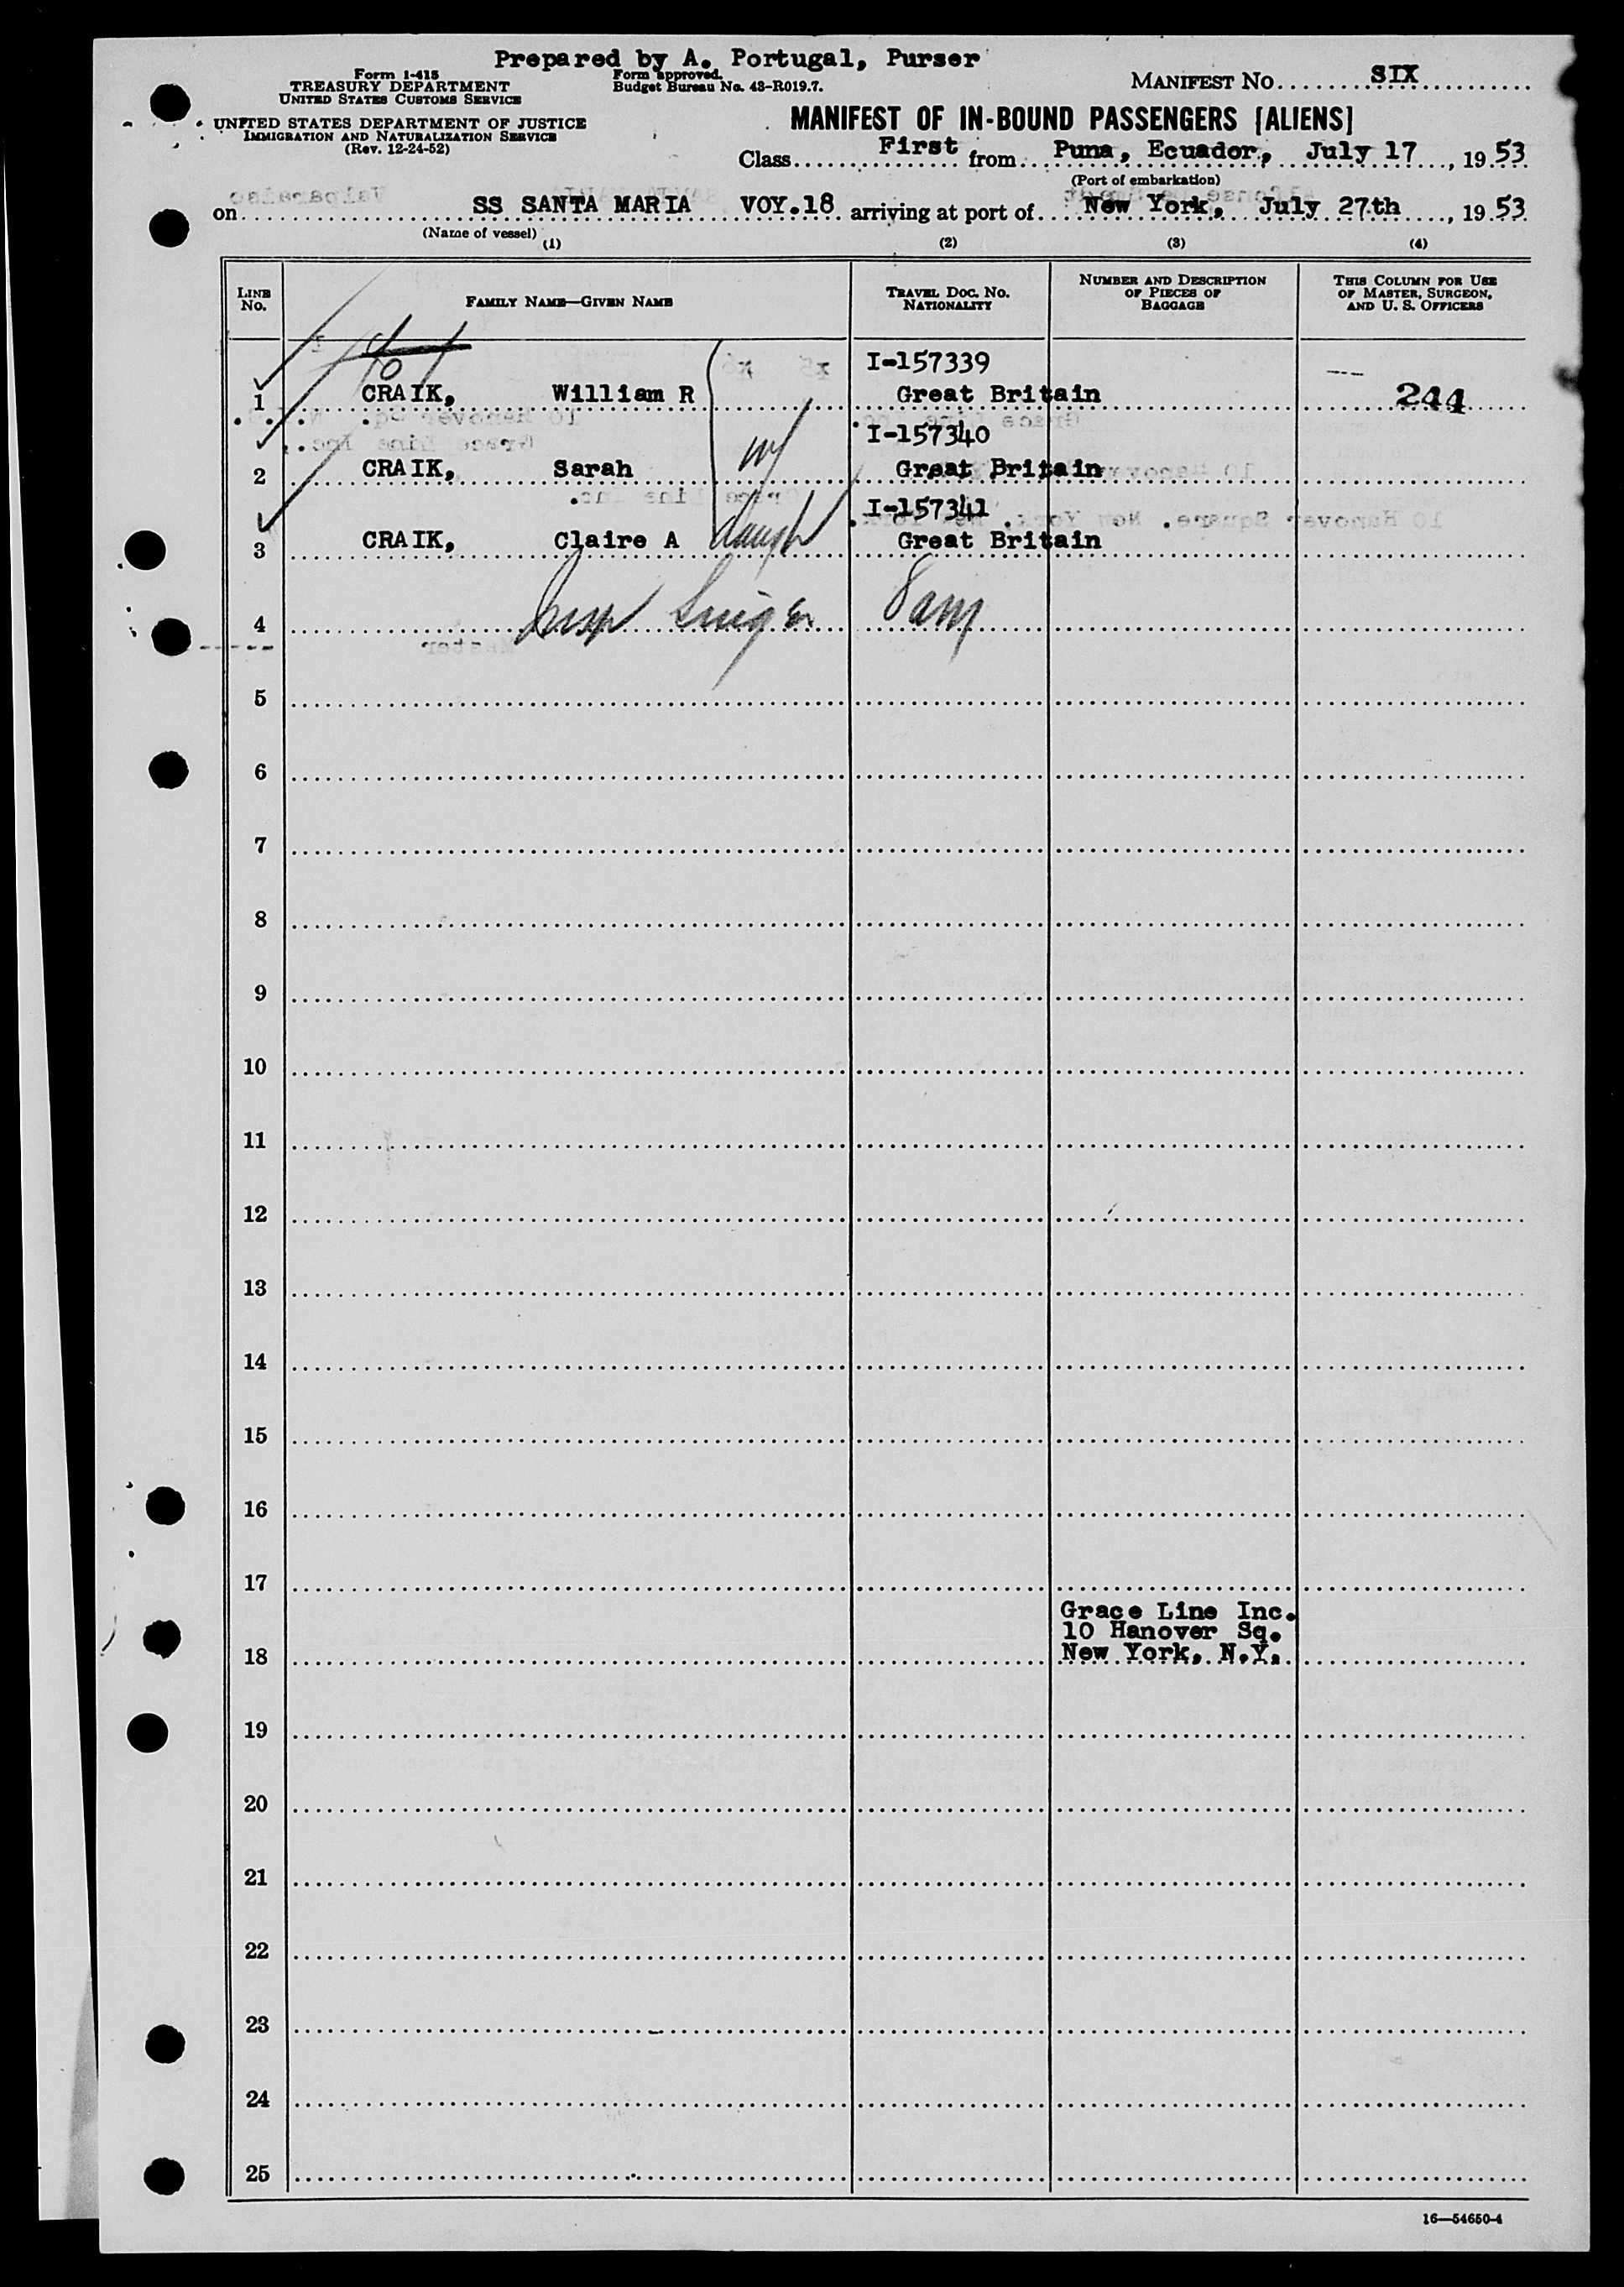 Prepared by A. Portugal, Purser
Form I-415
TREASURY DEPARTMENT
UNITED STATES CUSTOMS SERVICE
Form approved.
Budget Bureau No. 43-R019.7.
MANIFEST NO. SIX
UNITED STATES DEPARTMENT OF JUSTICE
IMMIGRATION AND NATURALIZATION SERVICE
(Rev. 12-24-52)
MANIFEST OF IN-BOUND PASSENGERS [ALIENS]
Class First from Puna, Ecuador, July 17, 1953
(Port of embarkation)
on SS SANTA MARIA VOY.18 arriving at port of New York, July 27th, 1953
(Name of vessel)
(1) (2) (3) (4)
LINE NO.
FAMILY NAME—GIVEN NAME
TRAVEL DOC. NO. NATIONALITY
NUMBER AND DESCRIPTION OF PIECES OF BAGGAGE
THIS COLUMN FOR USE OF MASTER, SURGEON, AND U. S. OFFICERS
I-157339
1 CRAIK, William R Great Britain 244
I-157340
2 CRAIK, Sarah w Great Britain
I-157341
3 CRAIK, Claire A daugh Great Britain
4
5
6
7
8
9
10
11
12
13
14
15
16
17
Grace Line Inc.
10 Hanover Sq.
18 New York, N.Y.
19
20
21
22
23
24
25
16—54650-4